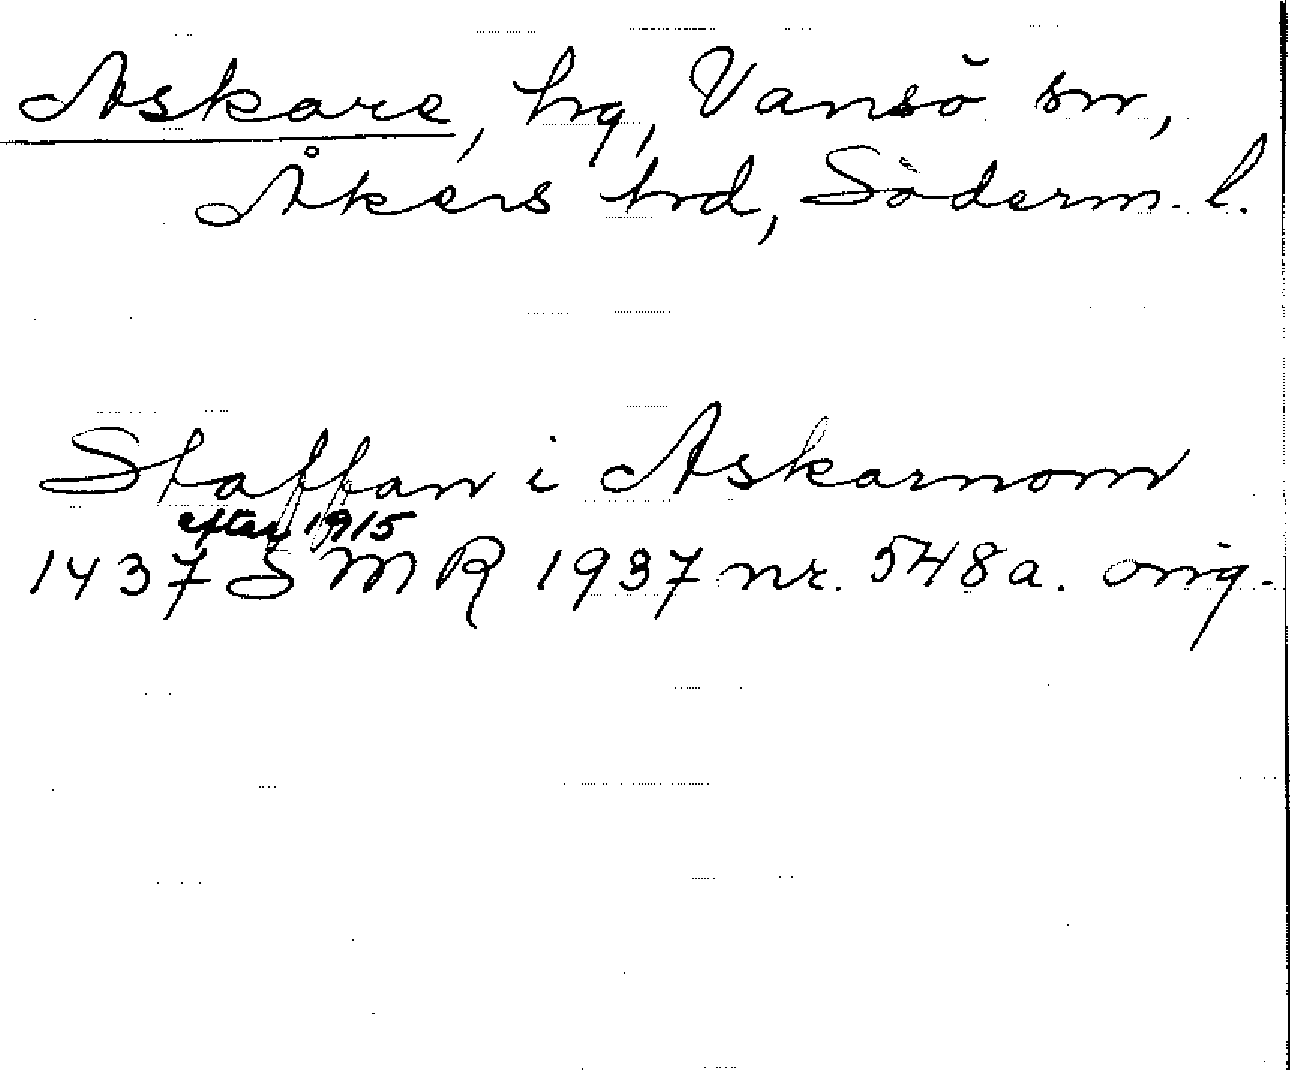 Askare, hg, Vansö sn,
Åkers hd, Söderm. l.
Staffan i Askarnom
efter 1915
1437 SMR 1937 nr. 548a. orig.